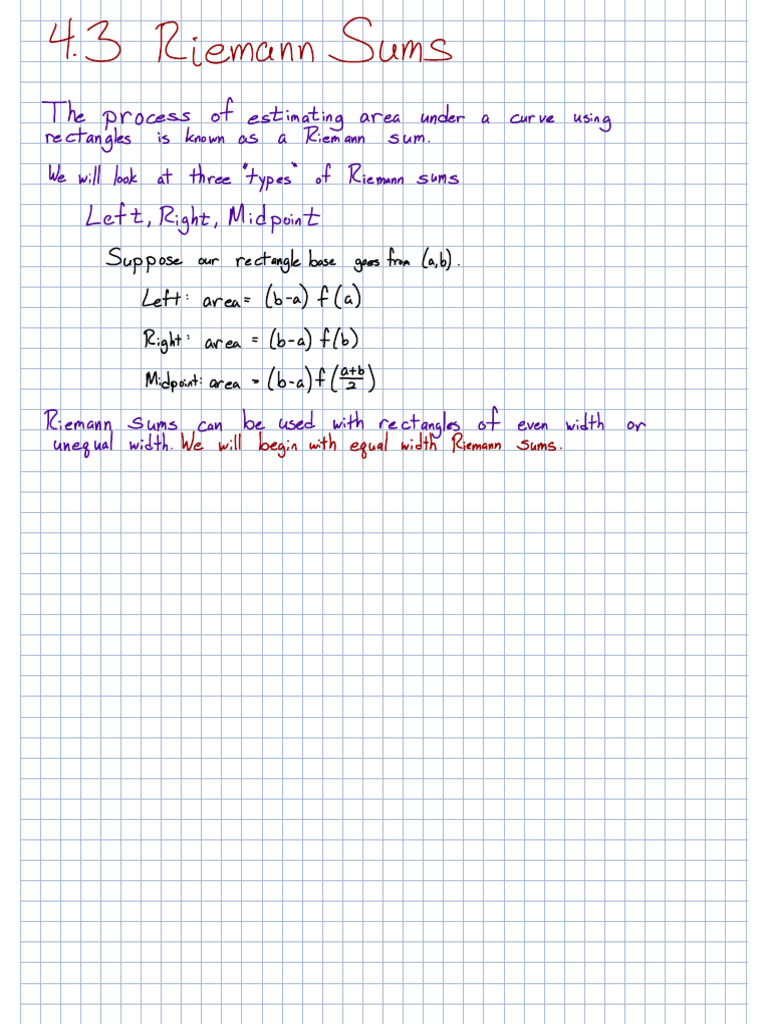 4.3 Riemann Sums
The process of estimating area under a curve using
rectangles is known as a Riemann sum.
We will look at three "types" of Riemann sums
Left, Right, Midpoint
Suppose our rectangle base goes from (a,b).
Left: area = (b-a) f(a)
Right: area = (b-a) f(b)
Midpoint: area = (b-a) f((a+b)/2)
Riemann sums can be used with rectangles of even width or
unequal width. We will begin with equal width Riemann sums.